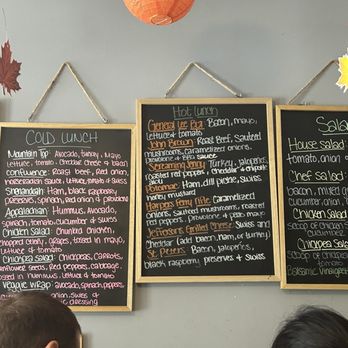 COLD LUNCH
Mountain Top: Avocado, turkey, mayo
lettuce, tomato, cheddar cheese & bacon
Confluence: Roast Beef, red onion,
horseradish sauce, lettuce, tomato & swiss
Shenandoah: Ham, black raspberry
preserves, spinach, red onion & provolone
Appalachian: Hummus, Avocado,
spinach, tomato, cucumber & swiss
Chicken Salad: Chunked chicken,
chopped celery, grapes, tossed in mayo,
lettuce & tomato
Chickpea Salad: Chickpeas, Carrots,
sunflower seeds, red peppers, cabbage,
tossed in hummus, lettuce & tomato
Veggie Wrap: Avocado, spinach, peppers,
onion, swiss &
dressing
Hot lunch
General Lee BLTA: Bacon, mayo,
lettuce & tomato
John Brown: Roast Beef, sauteed
mushrooms, caramelized onions,
provolone & BBQ sauce
Screaming Jenny: Turkey, jalapeños,
roasted red peppers, cheddar & chipotle
mayo
Potomac: Ham, dill pickle, swiss,
honey mustard
Harpers Ferry Hike: Caramelized
onions, tomatoes, spinach, sauteed
mushrooms, roasted
red peppers, & provolone
Jefferson's Grilled Cheese: Swiss and
Cheddar (add bacon, ham, or turkey)
St. Peters: Bacon, jalapeños,
black raspberry preserves & swiss
Sala
House Salad
tomato, onion
Chef Salad:
bacon, mixed
cucumber
Chicken Salad
scoop of
cucumber
Chickpea Sala
Scoop of
tomato
Balsamic Vinaigre